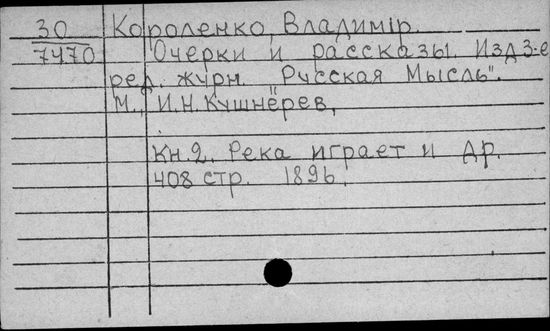 30 Короленко, Владимір.
7470 Очерки и рассказы. Изд 3-е
ред. журн. "Русская Мысль".
М., И.Н.Кушнёрев,
Кн.2. Река играет и др.
408 стр. 1896.